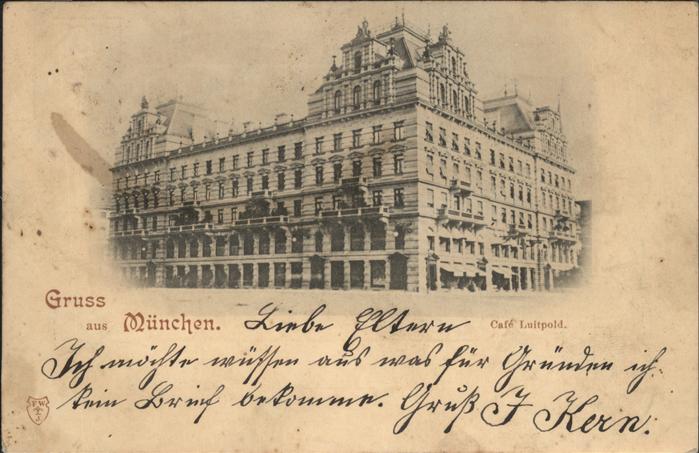 Gruss
aus München.
Café Luitpold.
Liebe Eltern
Ich möchte wüssen aus was für Gründen ich
kein Brief bekomme. Gruß J Kern.